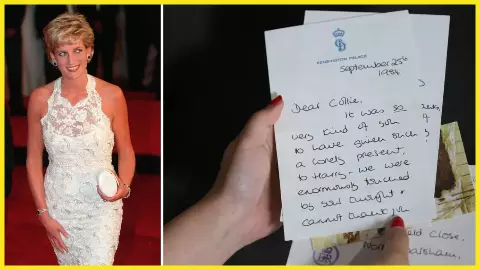 KENSINGTON PALACE
September 25th
1984
Dear Collie,
It was so
very kind of you
to have given such
a lovely present,
to Harry - we were
enormously touched
by your thought &
cannot thank you
field Close,
Horsham,